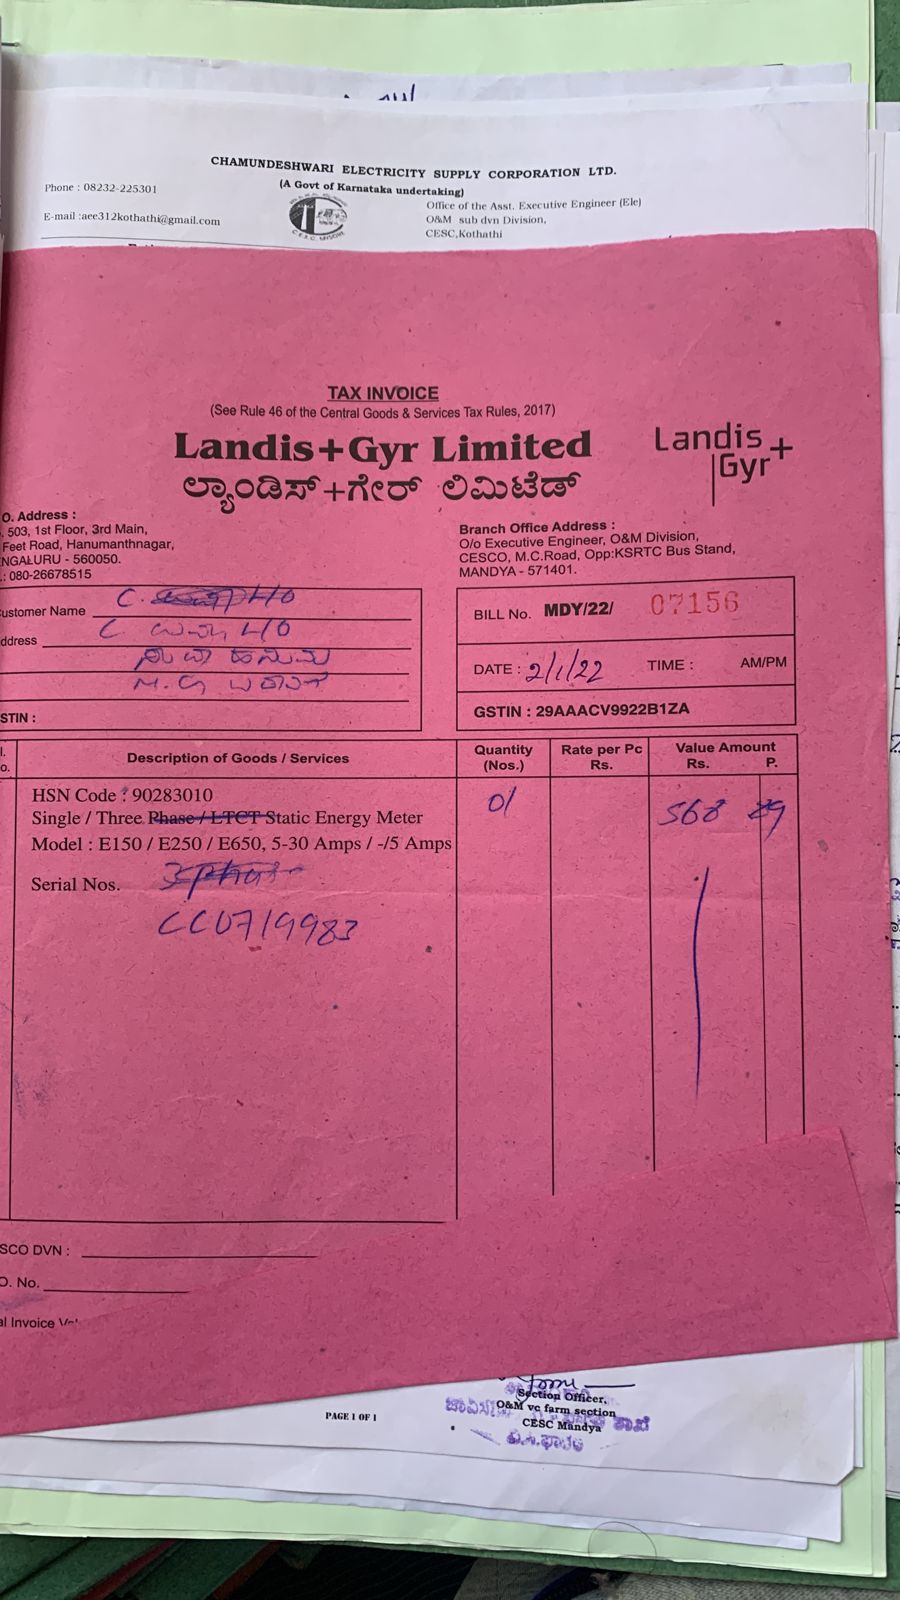 CHAMUNDESHWARI ELECTRICITY SUPPLY CORPORATION LTD.
(A Govt of Karnataka undertaking)
Phone : 08232-225301
E-mail :aee312kothathi@gmail.com
Office of the Asst. Executive Engineer (Ele)
O&M sub dvn Division,
CESC,Kothathi
TAX INVOICE
(See Rule 46 of the Central Goods & Services Tax Rules, 2017)
Landis+Gyr Limited
ಲ್ಯಾಂಡಿಸ್+ಗೇರ್ ಲಿಮಿಟೆಡ್
Landis
Gyr+
O. Address :
503, 1st Floor, 3rd Main,
Feet Road, Hanumanthnagar,
NGALURU - 560050.
.: 080-26678515
Branch Office Address :
O/o Executive Engineer, O&M Division,
CESCO, M.C.Road, Opp:KSRTC Bus Stand,
MANDYA - 571401.
ustomer Name C. H/O
ddress C
M.G
STIN :
BILL No. MDY/22/ 07156
DATE : 2/1/22 TIME : AM/PM
GSTIN : 29AAACV9922B1ZA
l. o. Description of Goods / Services Quantity (Nos.) Rate per Pc Rs. Value Amount Rs. P.
HSN Code : 90283010 01 568 89
Single / Three Phase / LTCT Static Energy Meter
Model : E150 / E250 / E650, 5-30 Amps / -/5 Amps
Serial Nos.
CC0719983
SCO DVN :
O. No.
al Invoice
Section Officer,
O&M vc farm section
CESC Mandya
PAGE 1 OF 1